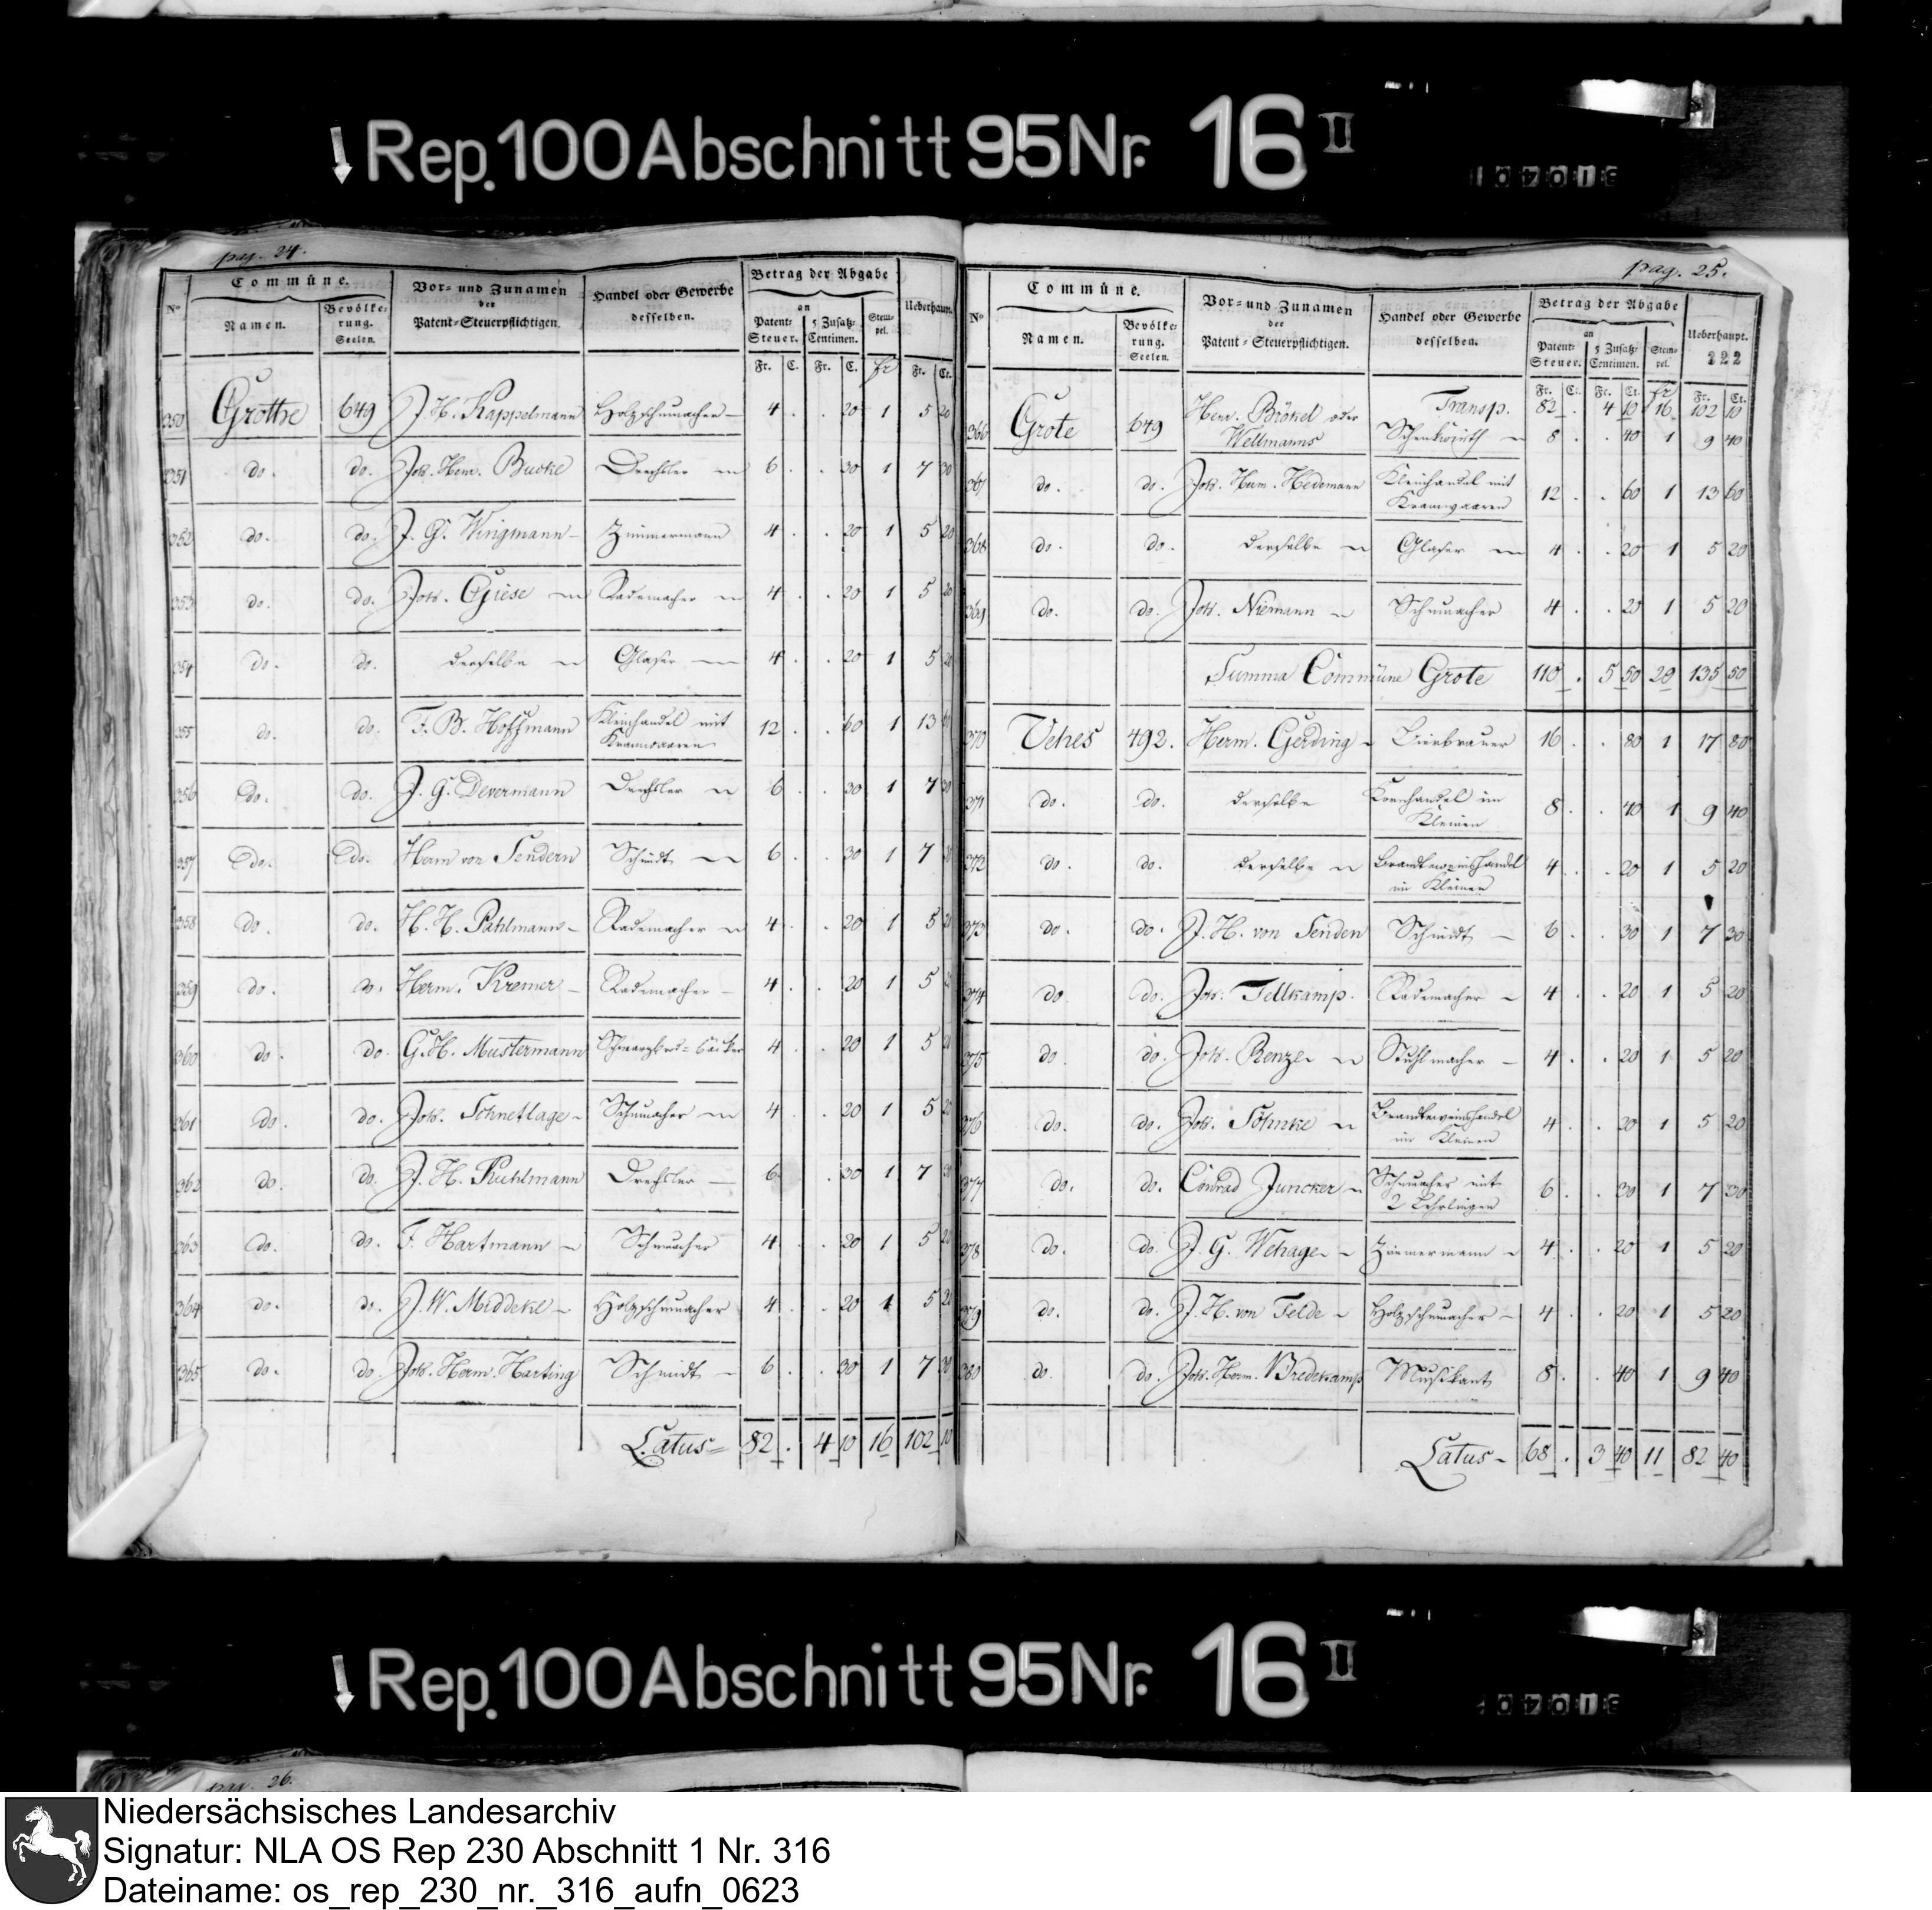 Rep. 100 Abschnitt 95 Nr. 16 II
pag. 24.
Commüne. Vor- und Zunamen der Patent-Steuerpflichtigen. Handel oder Gewerbe desselben. Betrag der Abgabe Ueberhaupt.
No Namen. Bevölke-rung. Seelen. an Patent-Steuer. 5 Zusatz-Centimen. Stem-pel.
Fr. C. Fr. C. fr Fr. Ct.
350 Grothe 649 J. H. Kappelmann Holzschumacher 4 . . 20 1 5 20
351 do. do. Joh. Herm. Bucke Drechsler 6 . . 30 1 7 30
352 do. do. J. G. Wingmann Zimmermann 4 . . 20 1 5 20
353 do. do. Joh. Giese Rademacher 4 . . 20 1 5 20
354 do. do. derselbe Glaser 4 . . 20 1 5 20
355 do. do. F. B. Hoffmann Kleinhandel mit Kramwaaren 12 . . 60 1 13 60
356 do. do. J. G. Devermann Drechsler 6 . . 30 1 7 30
357 do. do. Herm von Sendern Schmidt 6 . . 30 1 7 30
358 do. do. H. H. Pahlmann Rademacher 4 . . 20 1 5 20
359 do. do. Herm. Kremer Rademacher 4 . . 20 1 5 20
360 do. do. G. H. Mustermann Schwarzbrod-bäcker 4 . . 20 1 5 20
361 do. do. Joh. Schnetlage Schumacher 4 . . 20 1 5 20
362 do. do. J. H. Kuhlmann Drechsler 6 . . 30 1 7 30
363 do. do. F. Hartmann Schumacher 4 . . 20 1 5 20
364 do. do. J. W. Middeke Holzschumacher 4 . . 20 1 5 20
365 do. do. Joh. Herm. Harting Schmidt 6 . . 30 1 7 30
Latus 82 . 4 10 16 102 10
pag. 25.
Commüne. Vor- und Zunamen der Patent-Steuerpflichtigen. Handel oder Gewerbe desselben. Betrag der Abgabe Ueberhaupt.
222
No Namen. Bevölke-rung. Seelen. an Patent-Steuer. 5 Zusatz-Centimen. Stem-pel.
Fr. Ct. Fr. Ct. fr Fr. Ct.
Transp. 82 . 4 10 16 102 10
366 Grote 649 Herm. Brökel oder Wellmanns Schenkwirth 8 . . 40 1 9 40
367 do. do. Joh. Herm. Hedemann Kleinhandel mit Kramwaaren 12 . . 60 1 13 60
368 do. do. derselbe Glaser 4 . . 20 1 5 20
369 do. do. Joh. Niemann Schumacher 4 . . 20 1 5 20
Summa Commüne Grote 110 . 5 50 20 135 50
370 Vehes 492. Herm. Gerding Bierbrauer 16 . . 80 1 17 80
371 do. do. derselbe Kornhandel im Kleinen 8 . . 40 1 9 40
372 do. do. derselbe Brandtweinshandel im Kleinen 4 . . 20 1 5 20
373 do. do. J. H. von Senden Schmidt 6 . . 30 1 7 30
374 do do. Joh. Tellkamp. Rademacher 4 . . 20 1 5 20
375 do do. Joh. Renze Stuhlmacher 4 . . 20 1 5 20
376 do. do. Joh. Söhnke Brandtweinshandel im Kleinen 4 . . 20 1 5 20
377 do. do. Conrad Juncker Schumacher mit 2 Lehrlingen 6 . . 30 1 7 30
378 do. do. J. G. Wehage Zimmermann 4 . . 20 1 5 20
379 do. do. J. H. von Felde Holzschumacher 4 . . 20 1 5 20
380 do. do. Joh. Herm. Bredekamp Musikant 8 . . 40 1 9 40
Latus 68 . 3 40 11 82 40
Rep. 100 Abschnitt 95 Nr. 16 II
pag. 26.
Niedersächsisches Landesarchiv
Signatur: NLA OS Rep 230 Abschnitt 1 Nr. 316
Dateiname: os_rep_230_nr._316_aufn_0623